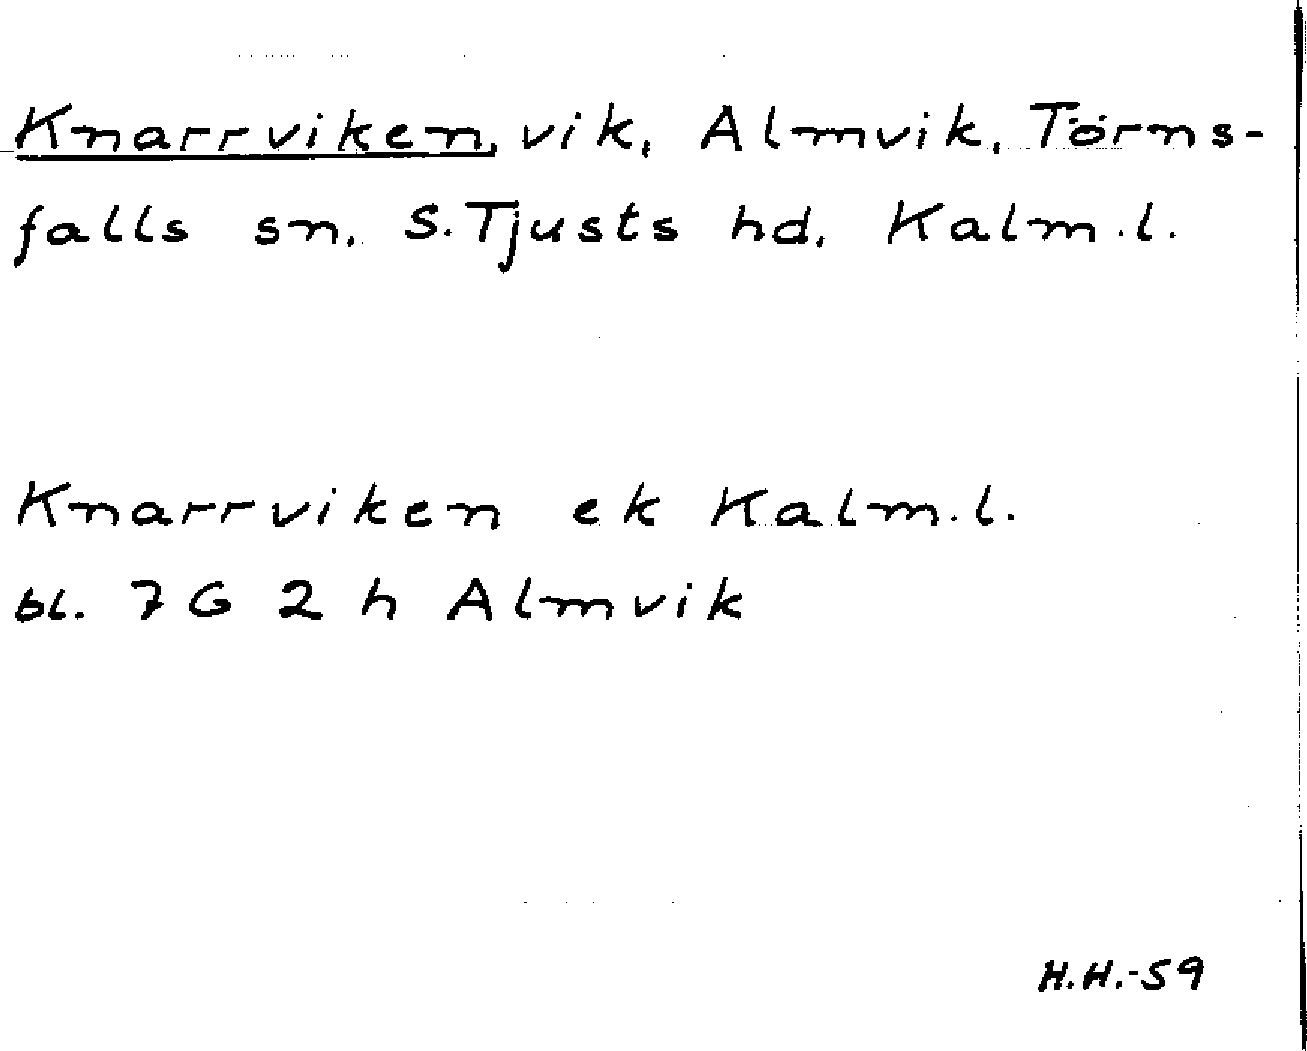 Knarrviken, vik, Almvik, Törns-
falls sn, S. Tjusts hd, Kalm. l.
Knarrviken ek Kalm. l.
bl. 7 G 2 h Almvik
H.H.-59